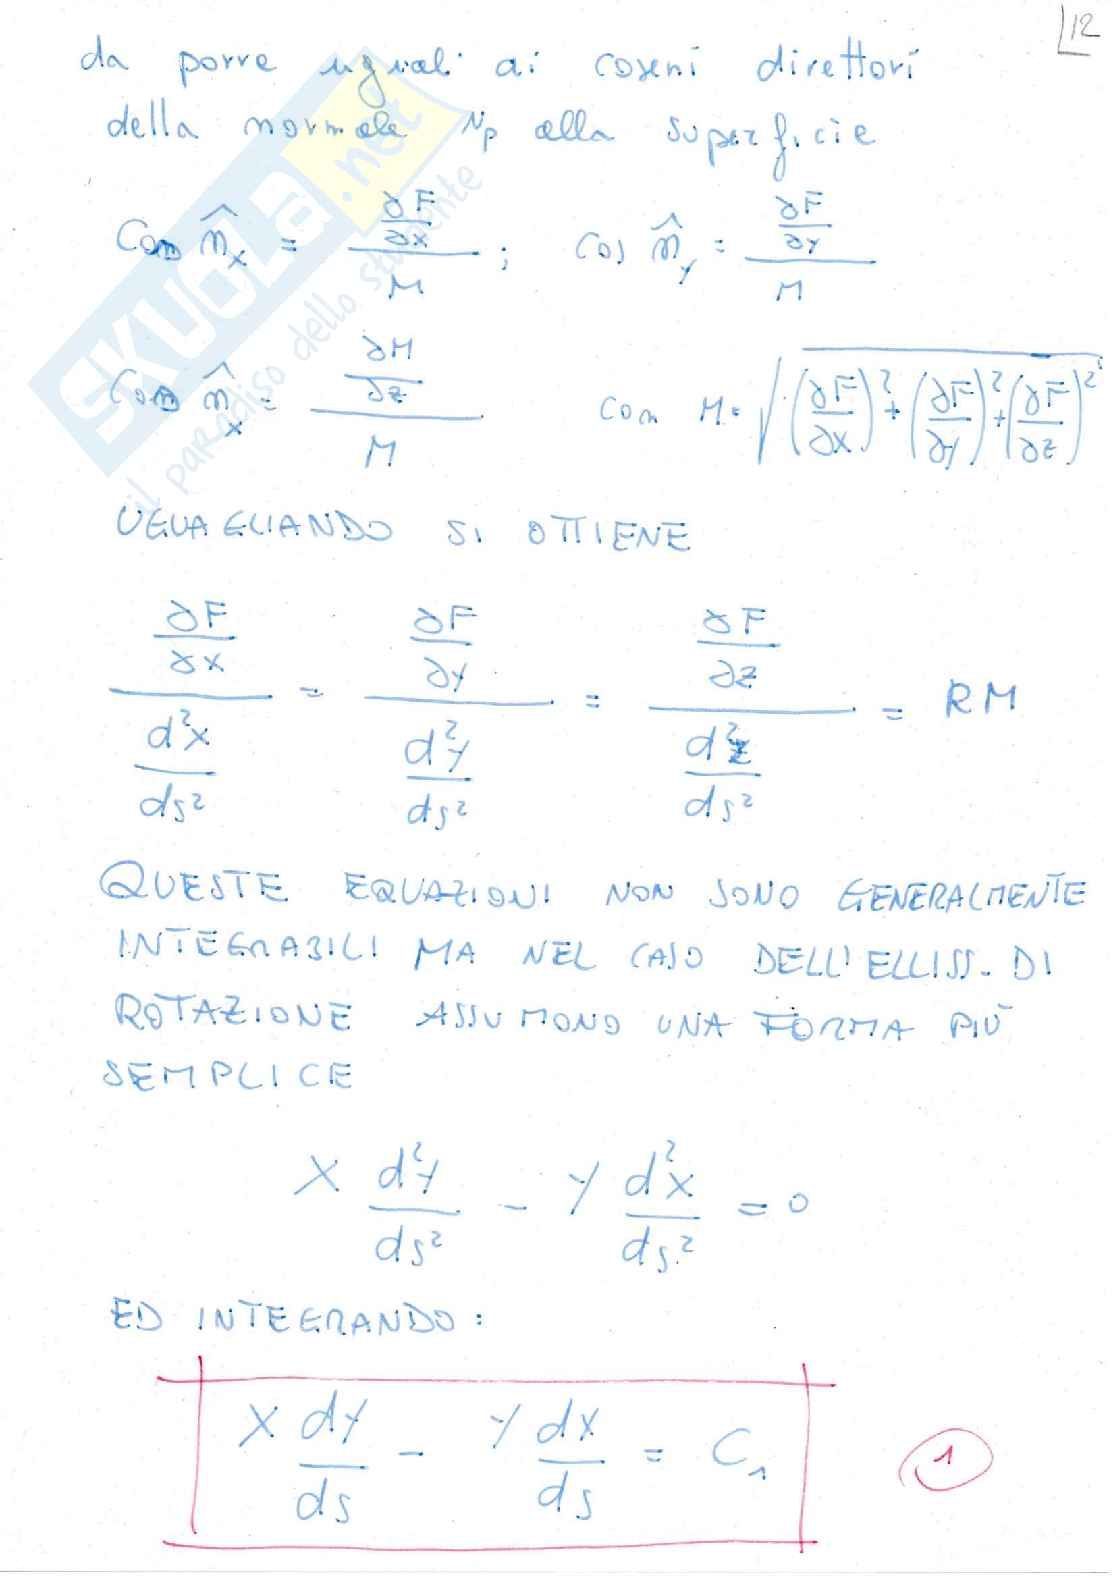 12
da porre uguali ai coseni direttori
della normale Np alla superficie
Cos n̂x = ∂F/∂x / M ; Cos n̂y = ∂F/∂y / M
Cos n̂x = ∂M/∂z / M con M = √((∂F/∂x)² + (∂F/∂y)² + (∂F/∂z)²)
UGUAGLIANDO SI OTTIENE
∂F/∂x / d²x/ds² = ∂F/∂y / d²y/ds² = ∂F/∂z / d²z/ds² = RM
QUESTE EQUAZIONI NON SONO GENERALMENTE
INTEGRABILI MA NEL CASO DELL'ELLISS. DI
ROTAZIONE ASSUMONO UNA FORMA PIÙ
SEMPLICE
X d²y/ds² - Y d²x/ds² = 0
ED INTEGRANDO:
X dy/ds - Y dx/ds = C₁ 1
SKUOLA.net
il paradiso dello studente